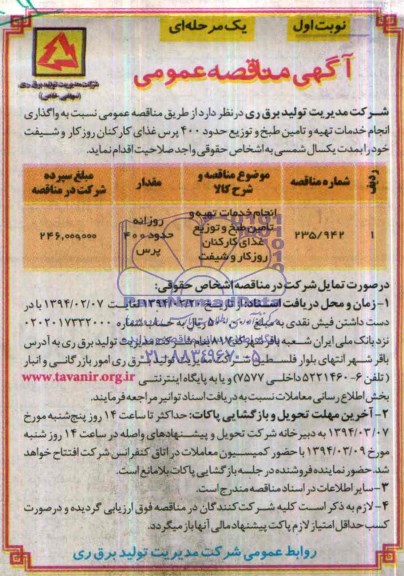 نوبت اول
یک مرحله‌ای
آگهی مناقصه عمومی
شرکت مدیریت تولید برق ری
(سهامی خاص)
شرکت مدیریت تولید برق ری در نظر دارد از طریق مناقصه عمومی نسبت به واگذاری
انجام خدمات تهیه و تامین طبخ و توزیع حدود ۴۰۰ پرس غذای کارکنان روز کار و شیفت
خود را بمدت یکسال شمسی به اشخاص حقوقی واجد صلاحیت اقدام نماید.
ردیف
شماره مناقصه
موضوع مناقصه و شرح کالا
مقدار
مبلغ سپرده شرکت در مناقصه
۱
۲۳۵/۹۴۲
انجام خدمات تهیه و تامین طبخ و توزیع غذای کارکنان روز کار و شیفت
روزانه حدود ۴۰۰ پرس
۲۴۶,۰۰۰,۰۰۰
در صورت تمایل شرکت در مناقصه اشخاص حقوقی:
۱- زمان و محل دریافت اسناد: از تاریخ ۱۳۹۴/۰۲/۲۰ لغایت ۱۳۹۴/۰۲/۰۷ با در
دست داشتن فیش نقدی به مبلغ ۵۰۰,۰۰۰ ریال به حساب شماره ۰۲۰۲۰۱۷۳۳۲۰۰۰
نزد بانک ملی ایران شعبه باقر شهر کد ۸۱۷ بنام شرکت مدیریت تولید برق ری به آدرس
باقر شهر انتهای بلوار فلسطین شرکت مدیریت تولید برق ری امور بازرگانی و انبار
(تلفن ۶-۵۵۲۲۱۴۶۰ داخلی ۷۵۷۷) و یا به پایگاه اینترنتی www.tavanir.org.ir
بخش اطلاع رسانی معاملات نسبت به دریافت اسناد توانیر مراجعه فرمایند.
۲- آخرین مهلت تحویل و بازگشایی پاکات: حداکثر تا ساعت ۱۴ روز پنج‌شنبه مورخ
۱۳۹۴/۰۳/۰۷ به دبیرخانه شرکت تحویل و پیشنهادهای واصله در ساعت ۱۴ روز شنبه
مورخ ۱۳۹۴/۰۳/۰۹ با حضور کمیسیون معاملات در اتاق کنفرانس شرکت افتتاح خواهد
شد. حضور نماینده فروشنده در جلسه بازگشایی پاکات بلامانع است.
۳- سایر اطلاعات در اسناد مناقصه مندرج است.
۴- لازم به ذکر است کلیه شرکت‌کنندگان در مناقصه فوق ارزیابی گردیده و در صورت
کسب حداقل امتیاز لازم پاکت پیشنهاد مالی آنها باز میگردد.
روابط عمومی شرکت مدیریت تولید برق ری
۰۲۱-۸۸۳۴۹۶۷۰-۵